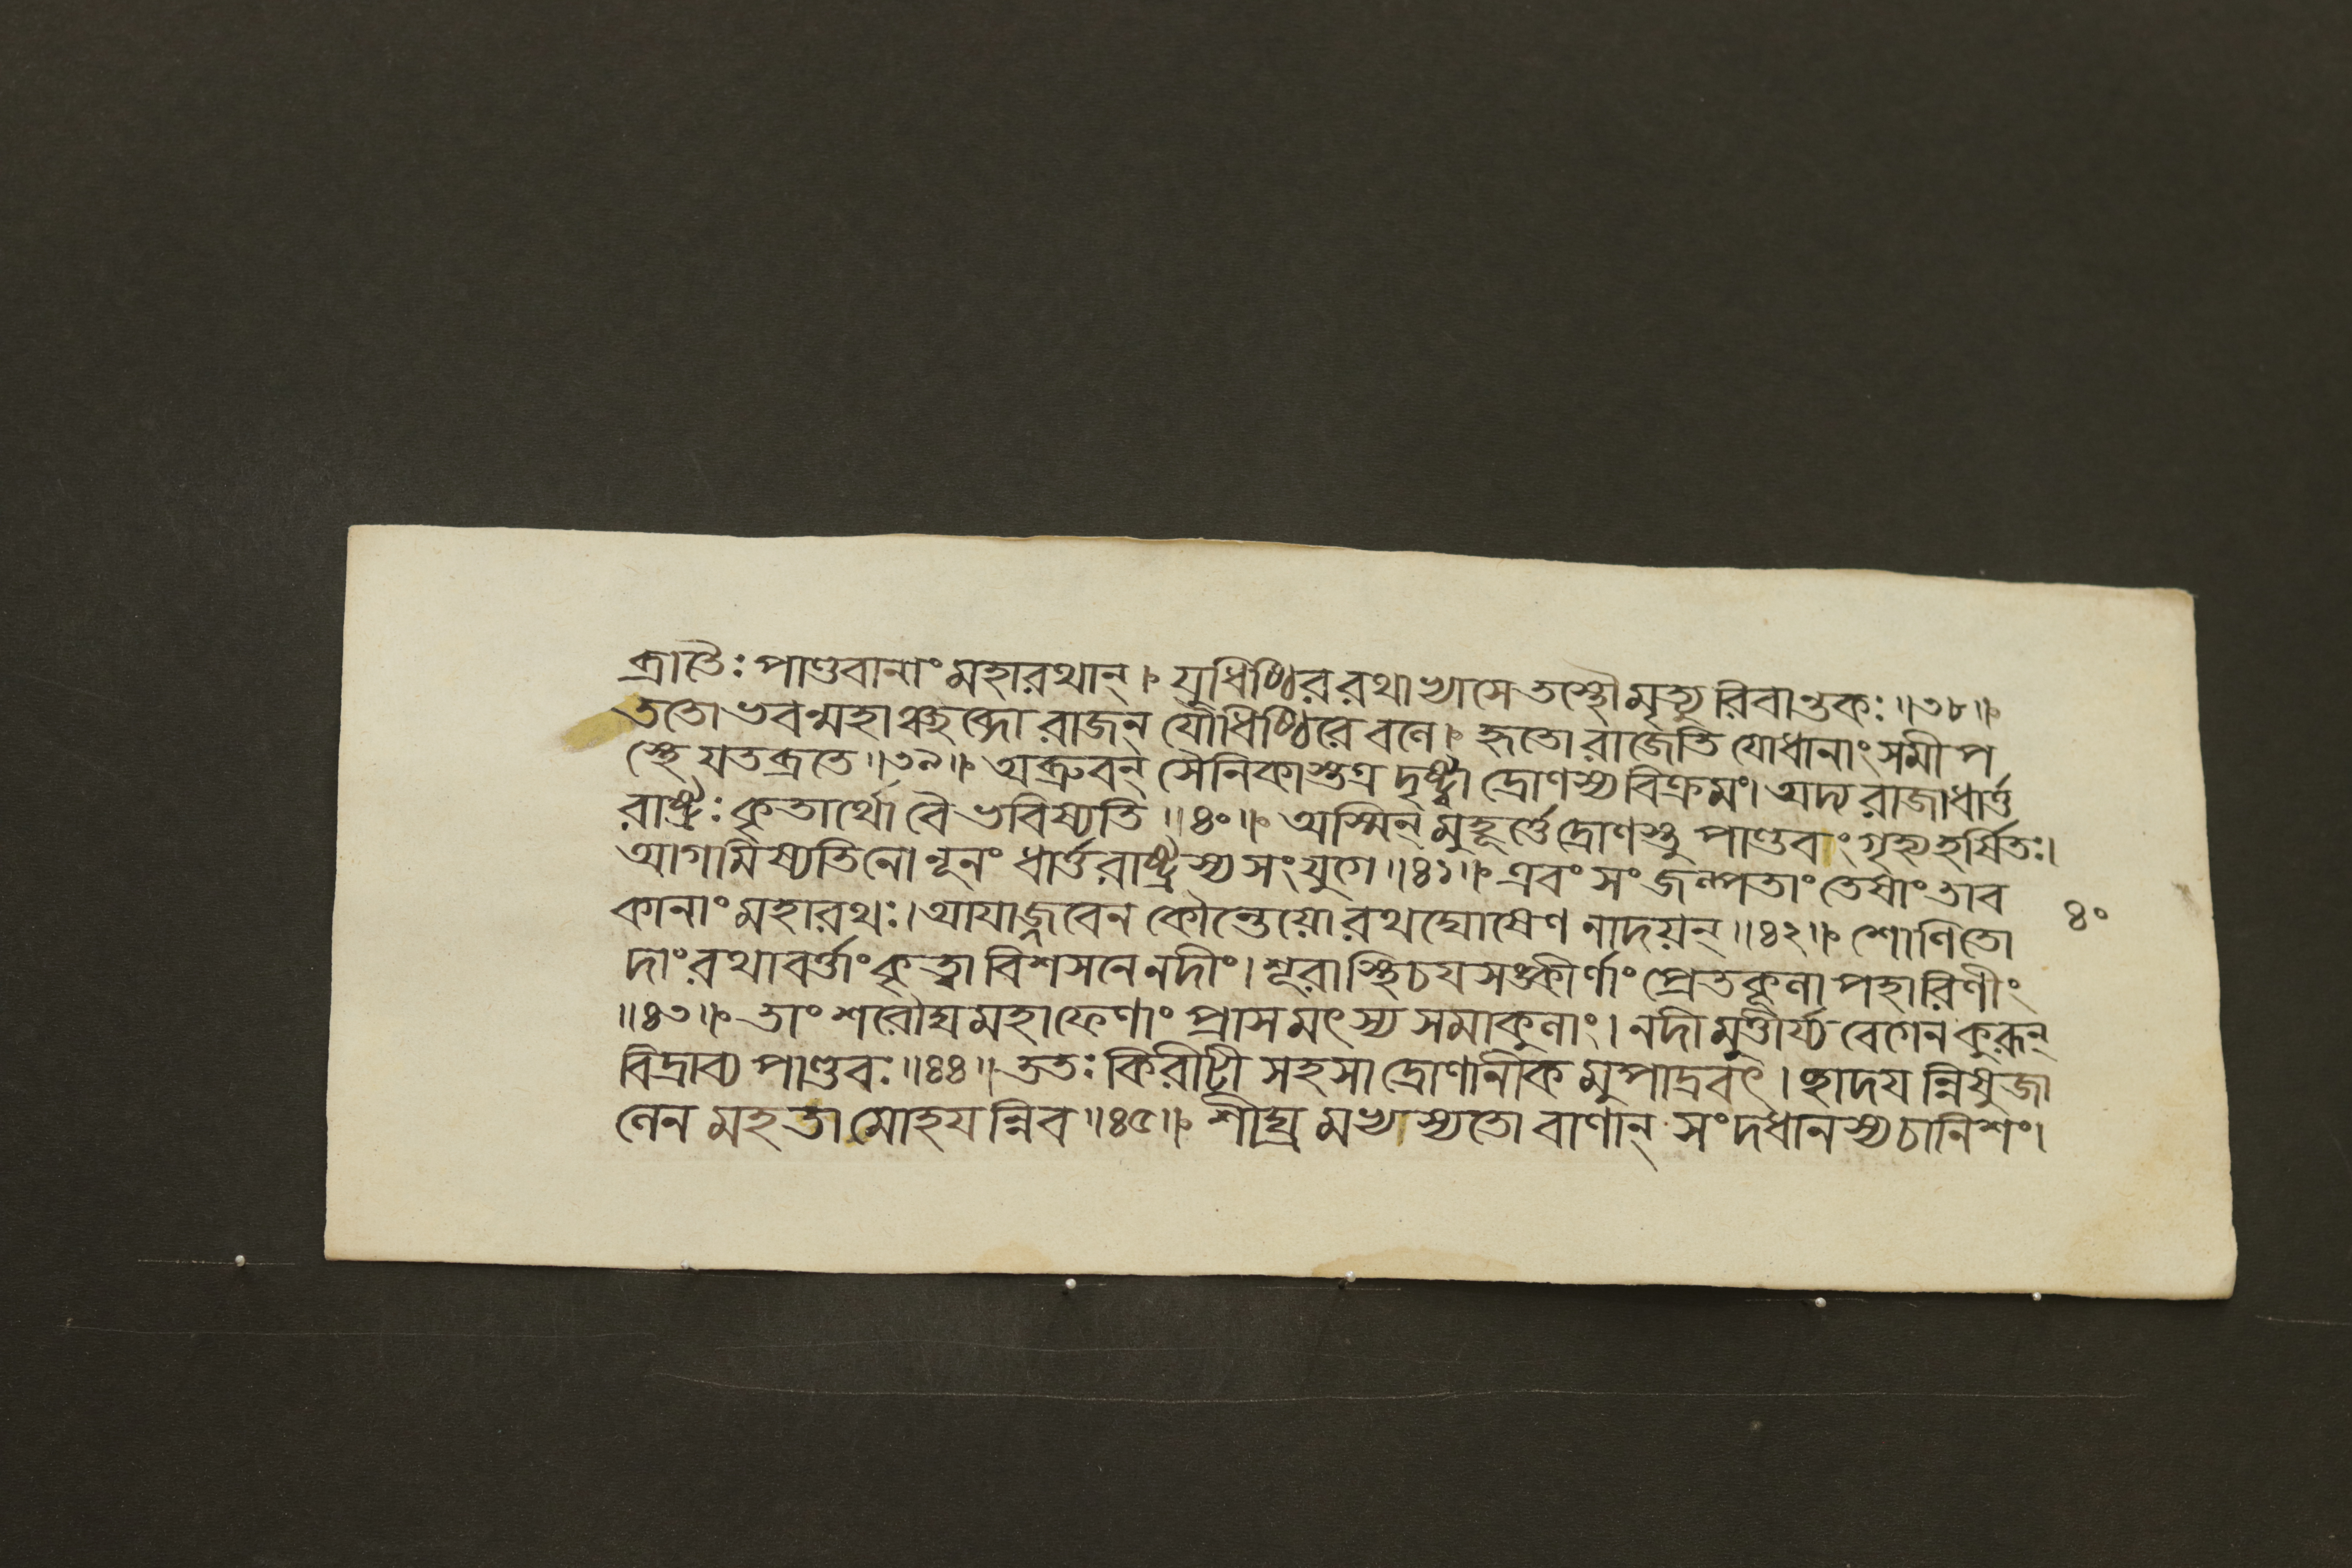 ব্রাতৈঃ পাণ্ডবানাং মহারথান্। যুধিষ্ঠিররথাভ্যাসে তস্থৌ মৃত্যুরিবান্তকঃ॥৩৮॥
ততোভবন্মহাঞ্ছব্দো রাজন্ যৌধিষ্ঠিরে বলে। হৃতো রাজেতি যোধানাং সমীপ
স্থে যতব্রতে॥৩৯॥ অব্রুবন্ সৈনিকাস্তত্র দৃষ্ট্বা দ্রোণস্য বিক্রমং। অদ্য রাজা ধার্ত্ত
রাষ্ট্রঃ কৃতার্থো বৈ ভবিষ্যতি॥৪০॥ অস্মিন্ মুহূর্ত্তে দ্রোণস্তু পাণ্ডবং গৃহ্য হর্ষিতঃ।
আগমিষ্যতি নো নূনং ধার্ত্তরাষ্ট্রস্য সংযুগে॥৪১॥ এবং সংজল্পতাং তেষাং তাব
কানাং মহারথঃ। আযাজ্জবেন কৌন্তেয়ো রথঘোষেণ নাদয়ন্॥৪২॥ শোণিতো
দাং রথাবর্ত্তাং কৃত্বা বিশসনে নদীং। শূরাস্থিচযসঙ্কীর্ণাং প্রেতকূলাপহারিণীং
॥৪৩॥ তাং শরৌঘমহাফেণাং প্রাসমৎস্যসমাকুলাং। নদীমুত্তীর্য্য বেগেন কুরূন্
বিদ্রাব্য পাণ্ডবঃ॥৪৪॥ ততঃ কিরীটী সহসা দ্রোণানীকমুপাদ্রবৎ। ছাদযন্নিষুজা
লেন মহতা মোহযন্নিব॥৪৫॥ শীঘ্রমভ্যস্যতো বাণান্ সংদধানস্য চানিশং।
৪০